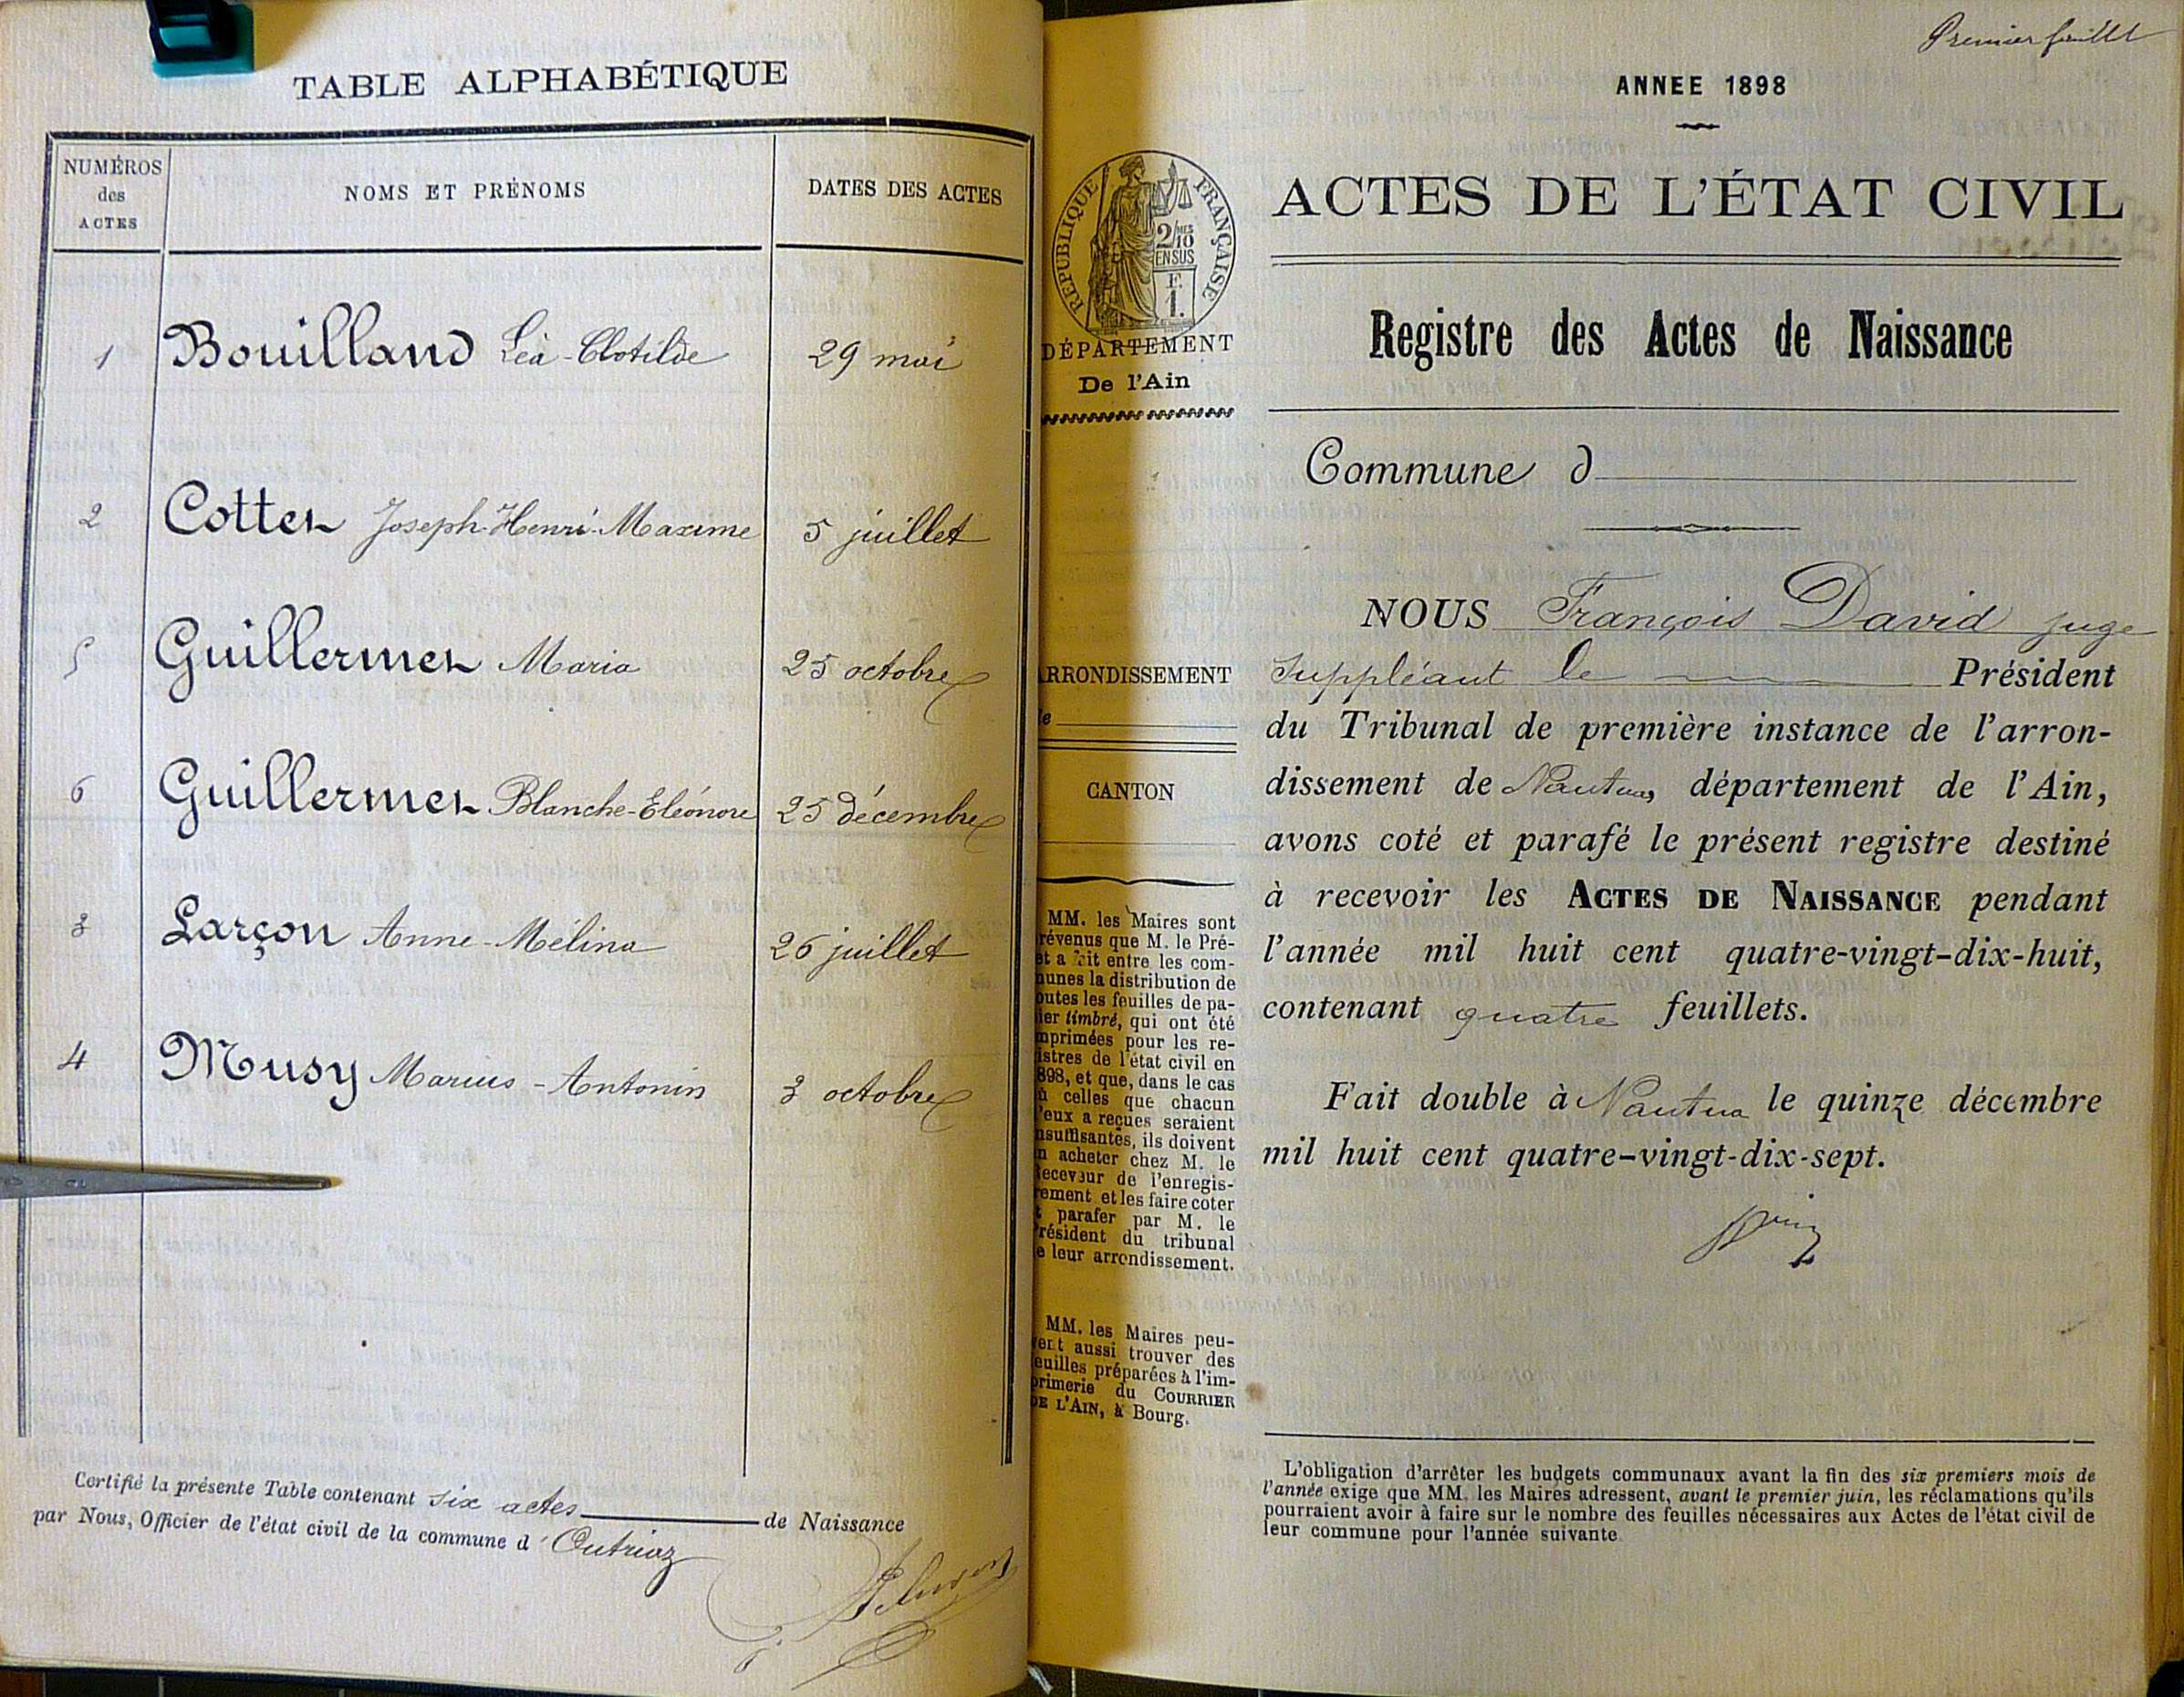 TABLE ALPHABÉTIQUE
NUMÉROS
des
ACTES
NOMS ET PRÉNOMS
DATES DES ACTES
1 Bouilland Léa-Clotilde 29 mai
2 Cotter Joseph-Henri-Maxime 5 juillet
5 Guillermer Maria 25 octobre
6 Guillermer Blanche-Eléonore 25 décembre
3 Larçon Anne-Mélina 26 juillet
4 Musy Marius-Antonin 3 octobre
Certifié la présente Table contenant six actes de Naissance
par Nous, Officier de l'état civil de la commune d'Outriaz
Premier feuillet
ANNEE 1898
RÉPUBLIQUE FRANÇAISE
2/10 MES
EN SUS
F.
1.
DÉPARTEMENT
De l'Ain
ARRONDISSEMENT
CANTON
MM. les Maires sont
révenus que M. le Pré-
et a fait entre les com-
munes la distribution de
outes les feuilles de pa-
ier timbré, qui ont été
mprimées pour les re-
istres de l'état civil en
898, et que, dans le cas
ù celles que chacun
'eux a reçues seraient
nsuffisantes, ils doivent
n acheter chez M. le
Receveur de l'enregis-
rement et les faire coter
t parafer par M. le
Président du tribunal
e leur arrondissement.
MM. les Maires peu-
vent aussi trouver des
euilles préparées à l'im-
primerie du COURRIER
DE L'AIN, à Bourg.
ACTES DE L'ÉTAT CIVIL
Registre des Actes de Naissance
Commune d
NOUS François David juge
suppléant le Président
du Tribunal de première instance de l'arron-
dissement de Nantua, département de l'Ain,
avons coté et parafé le présent registre destiné
à recevoir les ACTES DE NAISSANCE pendant
l'année mil huit cent quatre-vingt-dix-huit,
contenant quatre feuillets.
Fait double à Nantua le quinze décembre
mil huit cent quatre-vingt-dix-sept.
L'obligation d'arrêter les budgets communaux avant la fin des six premiers mois de
l'année exige que MM. les Maires adressent, avant le premier juin, les réclamations qu'ils
pourraient avoir à faire sur le nombre des feuilles nécessaires aux Actes de l'état civil de
leur commune pour l'année suivante.